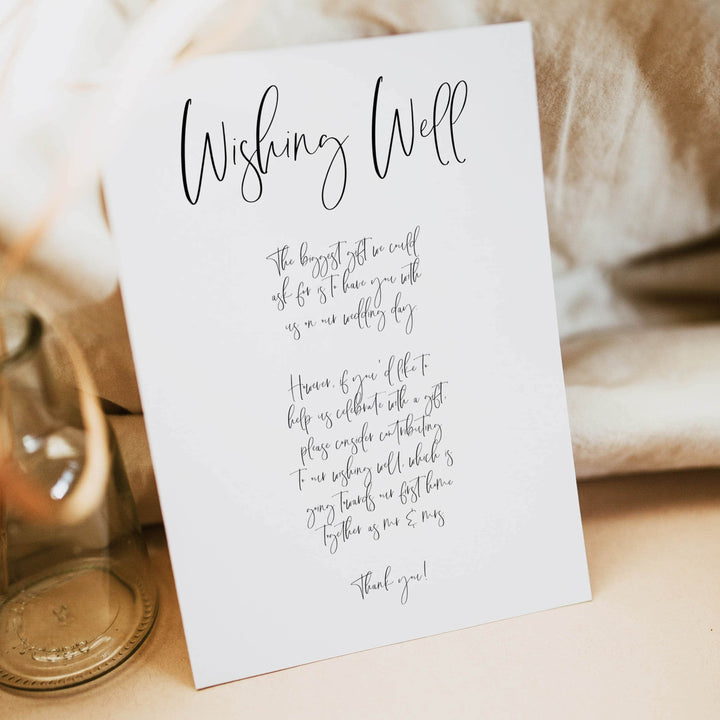 Wishing Well
The biggest gift we could
ask for is to have you with
us on our wedding day.
However, if you'd like to
help us celebrate with a gift,
please consider contributing
to our wishing well, which is
going towards our first home
together as mr & mrs
Thank you!